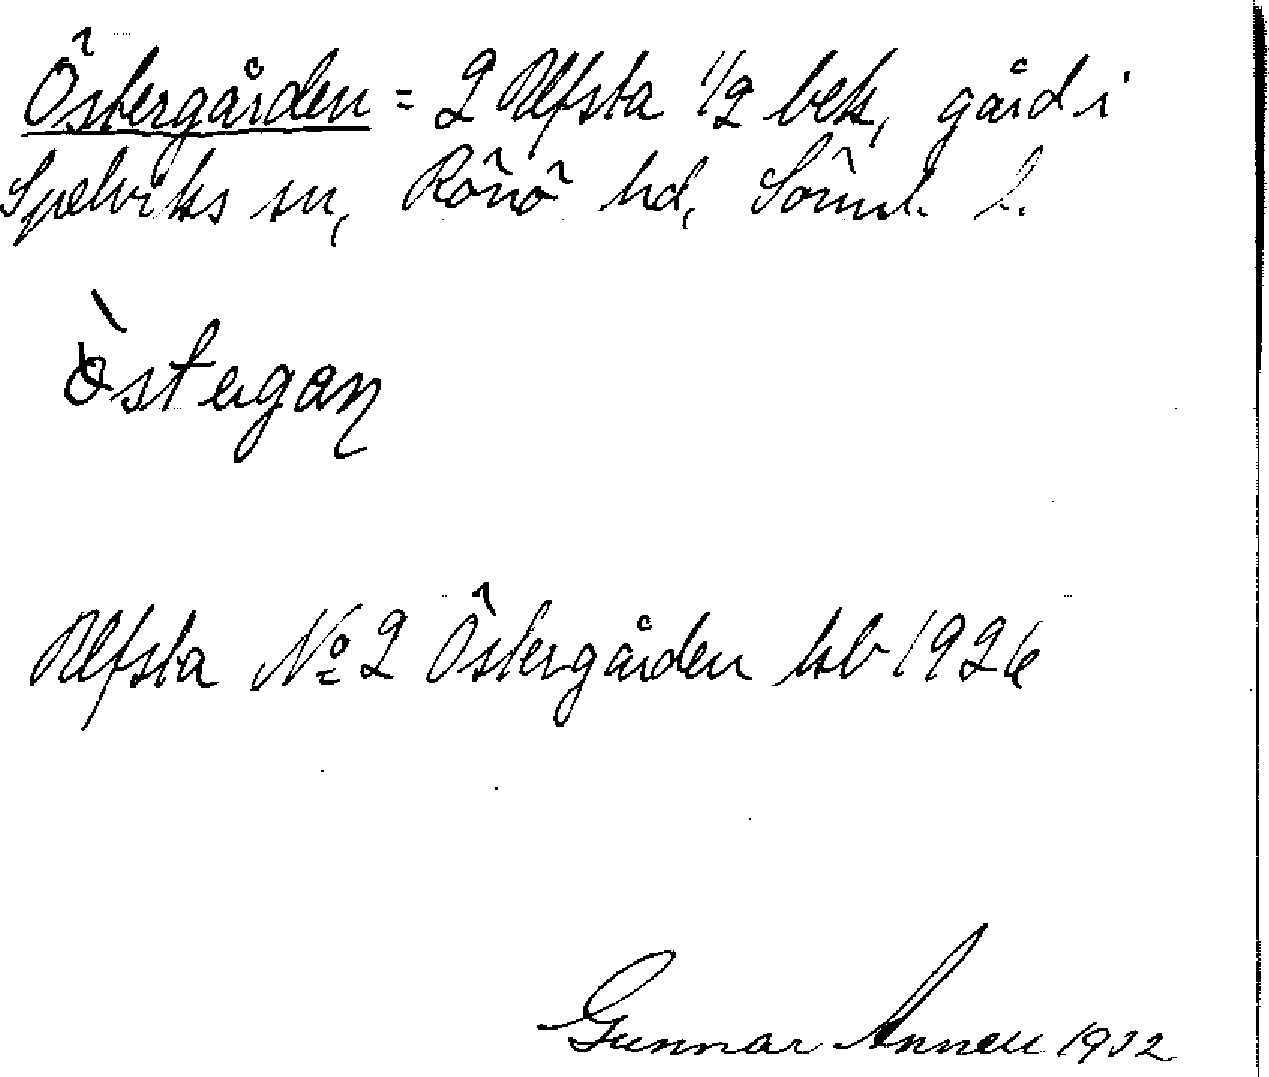 Östergården = 2 Ulfsta 1/2 bek, gård i
Spelviks sn, Rönö hd, Sörml. l.
Östergaɳ
Ulfsta No 2 Östergården kb 1926
Gunnar Annell 1932